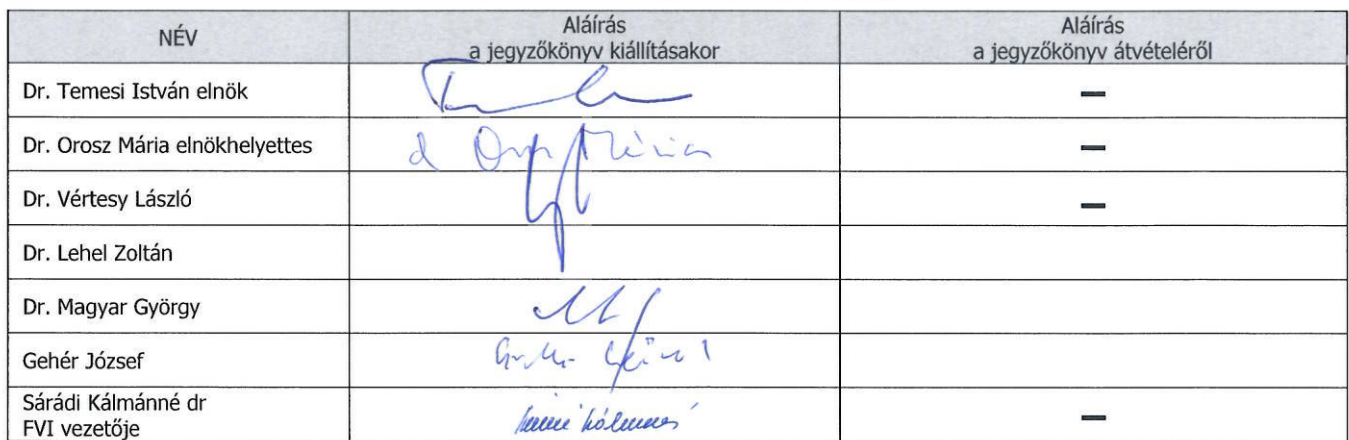 NÉV
Aláírás
a jegyzőkönyv kiállításakor
Aláírás
a jegyzőkönyv átvételéről
Dr. Temesi István elnök
–
Dr. Orosz Mária elnökhelyettes
d Orosz Mária
–
Dr. Vértesy László
–
Dr. Lehel Zoltán
Dr. Magyar György
Gehér József
Sárádi Kálmánné dr
FVI vezetője
–